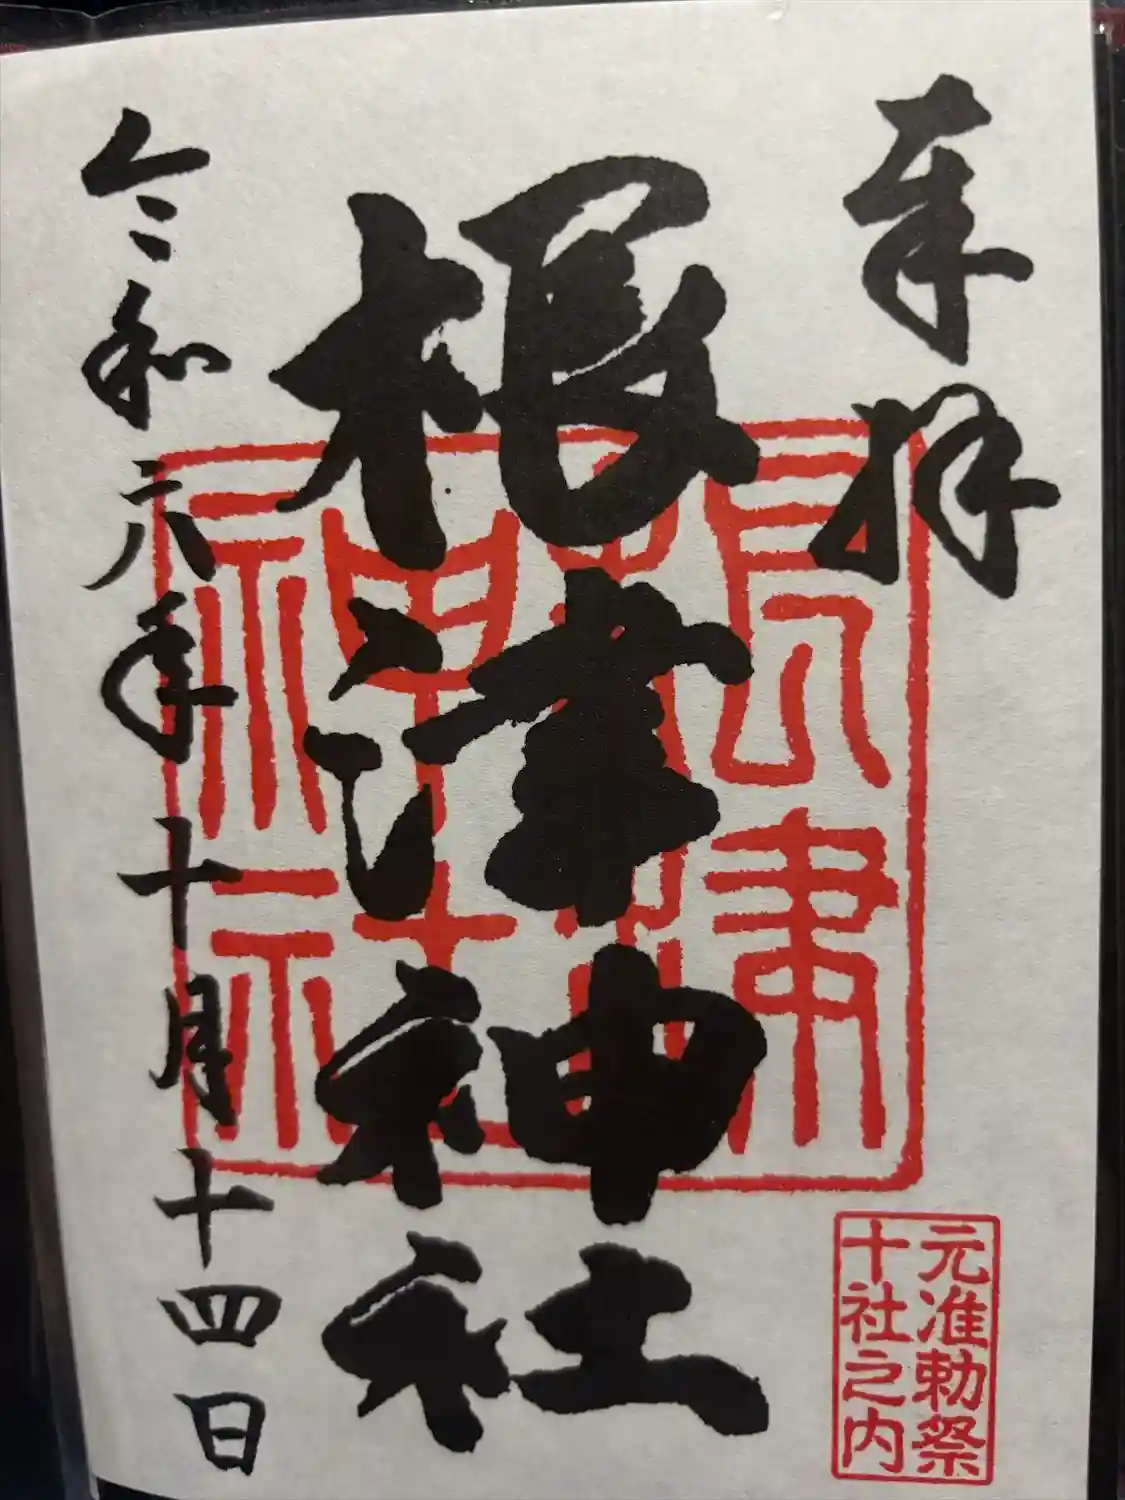 奉拝
根津神社
令和六年十月十四日
根津神社
元准勅祭
十社之内